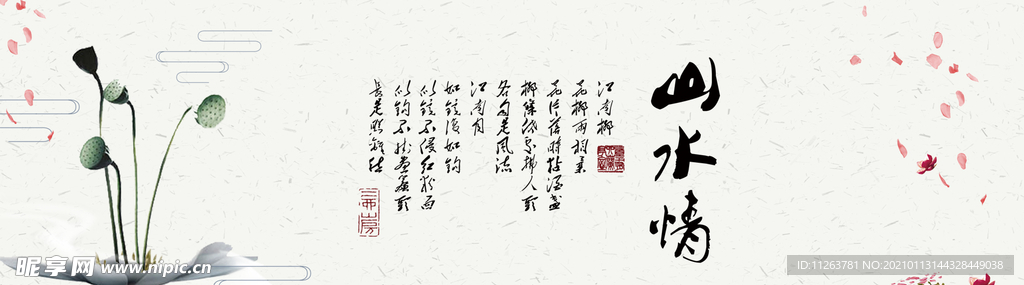 山水情
江南柳
花柳兩相柔
花片落時黏酒盞
柳條低處拂人頭
各自是風流
江南月
如鏡復如鉤
似鏡不侵紅粉面
似鉤不挂畫簾頭
長是照離愁
昵享网 www.nipic.cn
ID:11263781 NO:20210113144328449038